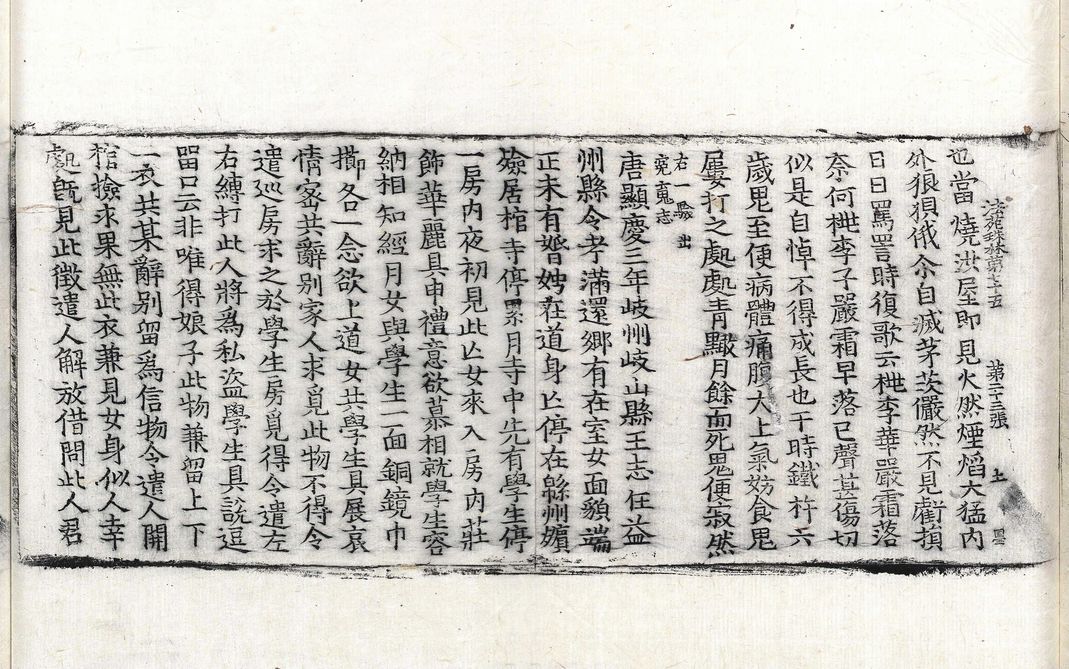 也當燒洪屋即見火然煙焰大猛內
法苑珠林第七十五 第二十三張 土
外狼狽俄尒自滅茅茨儼然不見虧損
日日罵詈時復歌云桃李華嚴霜落
奈何桃李子嚴霜早落已聲甚傷切
似是自悼不得成長也于時鐵杵六
歲鬼至便病體痛腹大上氣妨食鬼
屢打之處處青黶月餘而死鬼便寂然
右一驗出
冤魂志
唐顯慶三年岐州岐山縣王志任益
州縣令考滿還鄉有在室女面貌端
正未有婚娉在道身亡停在緜州殯
殮居棺寺停累月寺中先有學生停
一房內夜初見此亡女來入房內莊
飾華麗具申禮意欲慕相就學生容
納相知經月女與學生一面銅鏡巾
櫛各一念欲上道女共學生具展哀
情密共辭別家人求覓此物不得令
遣巡房求之於學生房覓得令遣左
右縛打此人將為私盜學生具說逗
留口云非唯得娘子此物兼留上下
二衣共某辭別留為信物令遣人開
棺撿求果無此衣兼見女身似人幸
處既見此徵遣人解放借問此人君